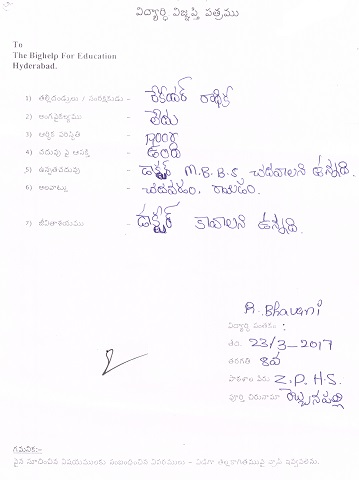 విద్యార్థి విజ్ఞప్తి పత్రము
To
The Bighelp For Education
Hyderabad.
1) తల్లిదండ్రులు / సంరక్షకుడు - కేర్‌టేకర్ రాధిక
2) అంగవైకల్యము - లేదు
3) ఆర్థిక పరిస్థితి -
4) చదువు పై ఆసక్తి - ఉంది
5) ఉన్నతచదువు - డాక్టర్ M.B.B.S చదవాలని ఉన్నది.
6) అలవాట్లు - చదవడం, రాయడం.
7) జీవితాశయము - డాక్టర్ కావాలని ఉన్నది.
A. Bhavani
విద్యార్థి సంతకం :
తేది. 23/3-2017
తరగతి 8వ
పాఠశాల పేరు Z.P.H.S.
పూర్తి చిరునామా
గమనిక:-
పైన సూచించిన విషయములకు సంబంధించిన వివరములు -